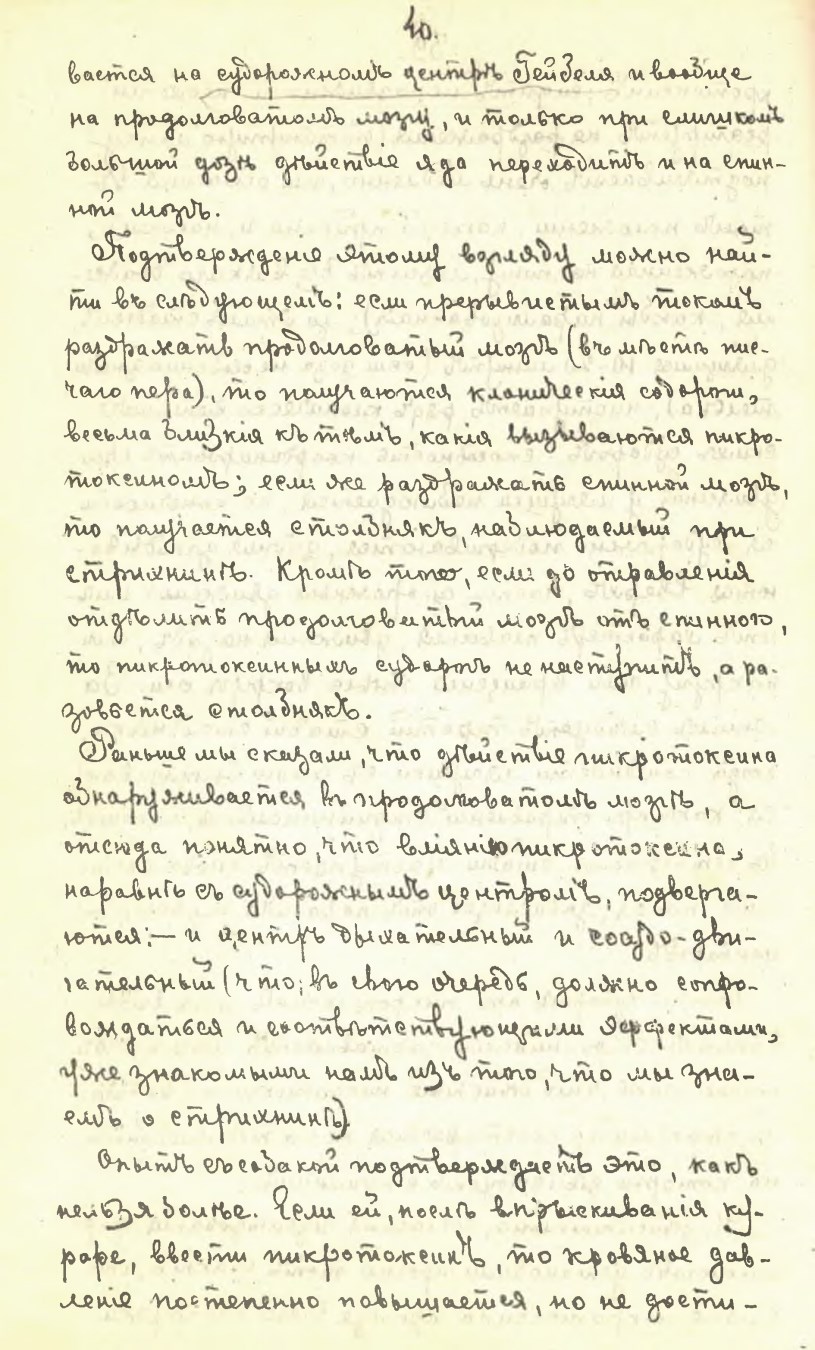 40.
вается на судорожномъ центрѣ Гейбеля и вообще
на продолговатомъ мозгу, и только при слишкомъ
большой дозѣ дѣйствіе яда переходитъ и на спин-
ной мозгъ.
Подтвержденіе этому взгляду можно най-
ти въ слѣдующемъ: если прерывистымъ токомъ
раздражать продолговатый мозгъ (въ мѣстѣ пис-
чаго пера), то получаются клоническія судороги,
весьма близкія къ тѣмъ, какія вызываются пикро-
токсиномъ; если же раздражать спинной мозгъ,
то получается столбнякъ, наблюдаемый при
стрихнинѣ. Кромѣ того, если до отравленія
отдѣлить продолговатый мозгъ отъ спинного,
то пикротоксинныхъ судорогъ не наступитъ, а ра-
зовьется столбнякъ.
Раньше мы сказали, что дѣйствіе пикротоксина
обнаруживается въ продолговатомъ мозгѣ, а
отсюда понятно, что вліянію пикротоксина,
наравнѣ съ судорожнымъ центромъ, подверга-
ются:— и центръ дыхательный и сосудо-дви-
гательный (что, въ свою очередь, должно сопро-
вождаться и соотвѣтствующими эффектами,
уже знакомыми намъ изъ того, что мы зна-
емъ о стрихнинѣ).
Опытъ съ собакой подтверждаетъ это, какъ
нельзя болѣе. Если ей, послѣ впрыскиванія ку-
раре, ввести пикротоксинъ, то кровяное дав-
леніе постепенно повышается, но не дости-